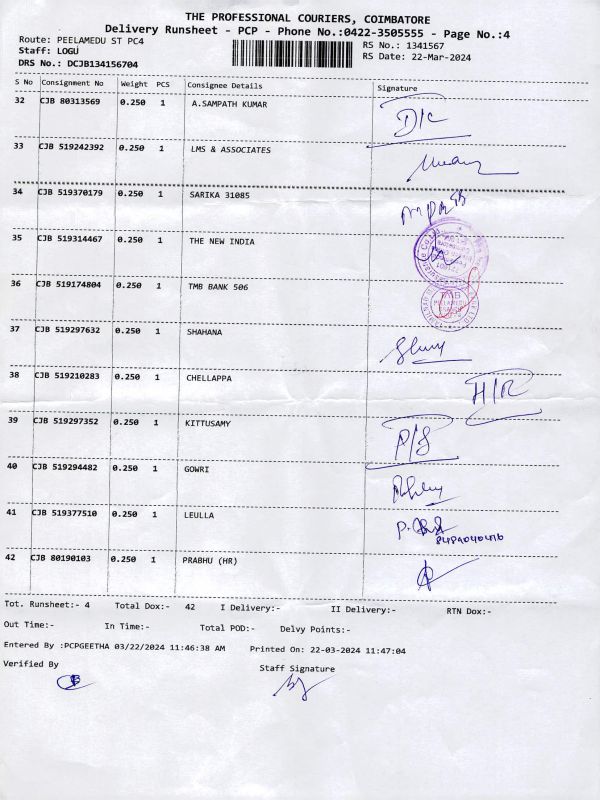 THE PROFESSIONAL COURIERS, COIMBATORE
Delivery Runsheet - PCP - Phone No.:0422-3505555 - Page No.:4
Route: PEELAMEDU ST PC4
RS No.: 1341567
Staff: LOGU
RS Date: 22-Mar-2024
DRS No.: DCJB134156704
S No Consignment No Weight PCS Consignee Details Signature
32 CJB 80313569 0.250 1 A.SAMPATH KUMAR D/C
33 CJB 519242392 0.250 1 LMS & ASSOCIATES
34 CJB 519370179 0.250 1 SARIKA 31085
35 CJB 519314467 0.250 1 THE NEW INDIA
36 CJB 519174804 0.250 1 TMB BANK 506
TMB
PEELAMEDU
37 CJB 519297632 0.250 1 SHAHANA
38 CJB 519210283 0.250 1 CHELLAPPA H/R
39 CJB 519297352 0.250 1 KITTUSAMY P/S
40 CJB 519294482 0.250 1 GOWRI
41 CJB 519377510 0.250 1 LEULLA
42 CJB 80190103 0.250 1 PRABHU (HR)
Tot. Runsheet:- 4 Total Dox:- 42 I Delivery:- II Delivery:- RTN Dox:-
Out Time:- In Time:- Total POD:- Delvy Points:-
Entered By :PCPGEETHA 03/22/2024 11:46:38 AM Printed On: 22-03-2024 11:47:04
Verified By Staff Signature